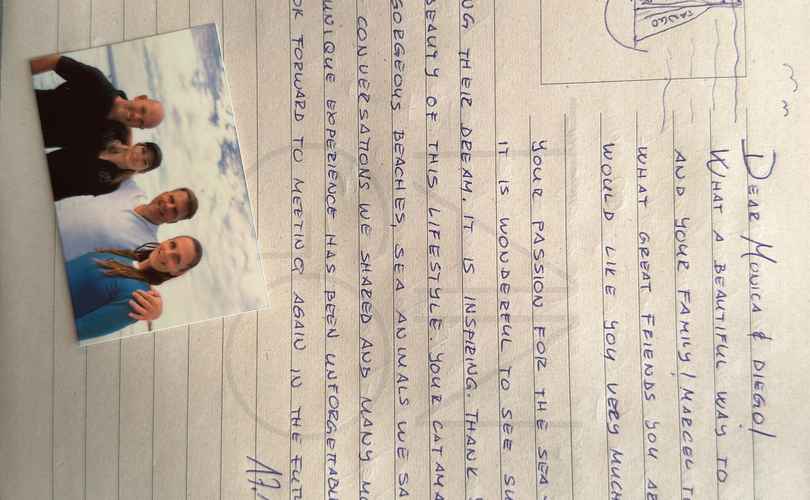 DEAR MONICA & DIEGO!
WHAT A BEAUTIFUL WAY TO
AND YOUR FAMILY! MARCEL T
WHAT GREAT FRIENDS YOU A
WOULD LIKE YOU VERY MUCH
YOUR PASSION FOR THE SEA -
IT IS WONDERFUL TO SEE SU
NG THEIR DREAM. IT IS INSPIRING. THANK
BEAUTY OF THIS LIFESTYLE. YOUR CATAMA
GORGEOUS BEACHES, SEA ANIMALS WE SA
CONVERSATIONS WE SHARED AND MANY MO
UNIQUE EXPERIENCE HAS BEEN UNFORGETTABL
OK FORWARD TO MEETING AGAIN IN THE FUT
17.